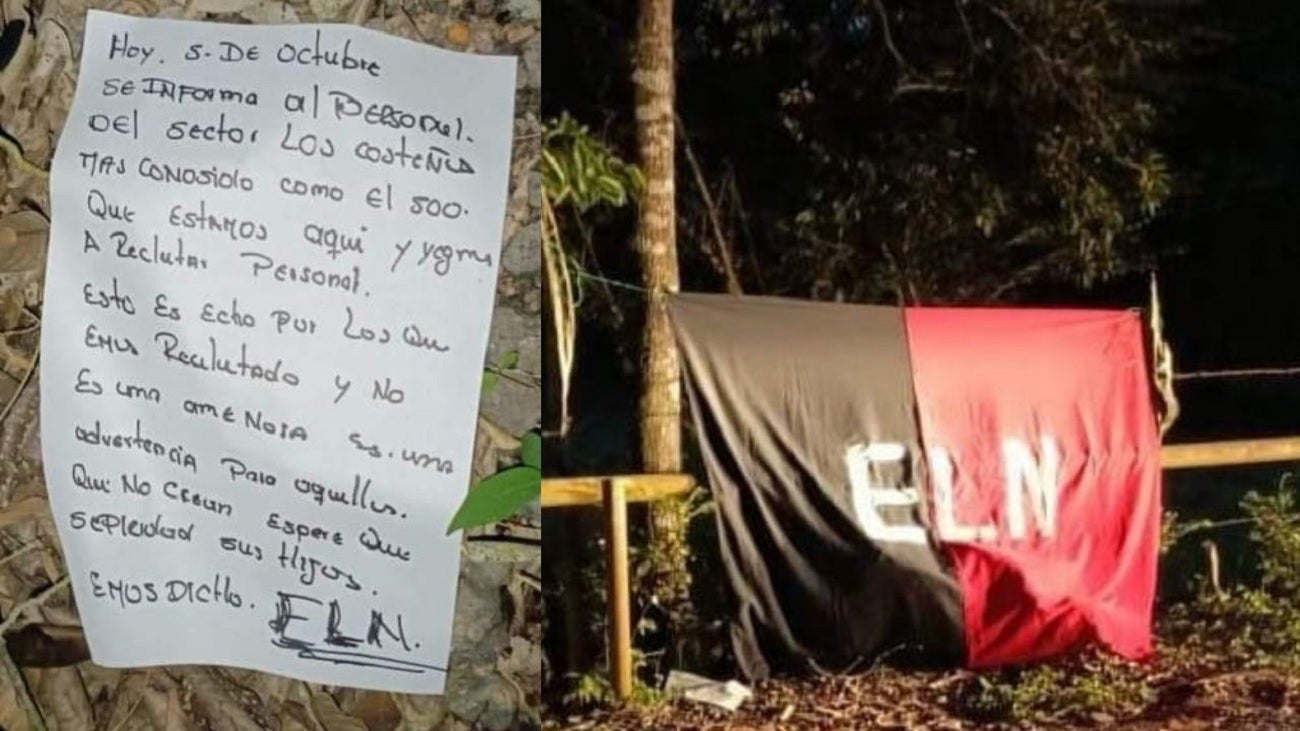 Hoy. 5. DE Octubre
SE INFORma al PERSONAL.
DEl sector Los costeÑCs
MAS CONOSIDO como El 500.
Que EStAMOS aqui y
A Reclutar Personal.
Esto Es Echo Por Los Qu
EMUS Reclutado y No
Es una amENaSA Es. una
advertencia Para aquellus.
Que No Crean Espere Que
SEPierdad sus Hijos.
EMOS DICHo. ELN.
ELN